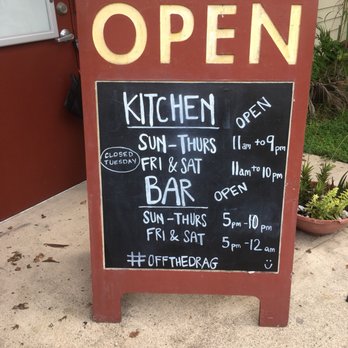 OPEN
KITCHEN OPEN
SUN-THURS 11am to 9pm
CLOSED
TUESDAY
FRI & SAT 11am to 10pm
BAR OPEN
SUN-THURS 5pm-10pm
FRI & SAT 5pm-12am
#OFFTHEDRAG